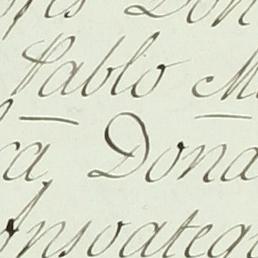 Don
Pablo M
ca Dona
Ansoategu